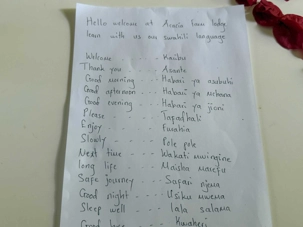 Hello welcome at Acacia Farm lodge
learn with us my swahili language
Welcome - Karibu
Thank you - Asante
Good morning - Habari ya asubuhi
Good afternoon - Habari ya mchana
Good evening - Habari ya jioni
Please - - - Tafadhali
Enjoy - - - - Furahia
Slowly - - - - Pole pole
Next time - - - Wakati mwingine
long life - - - Maisha marefu
Safe journey - - - Safari njema
Good night - - - Usiku mwema
Sleep well - - - lala salama
Kwaheri